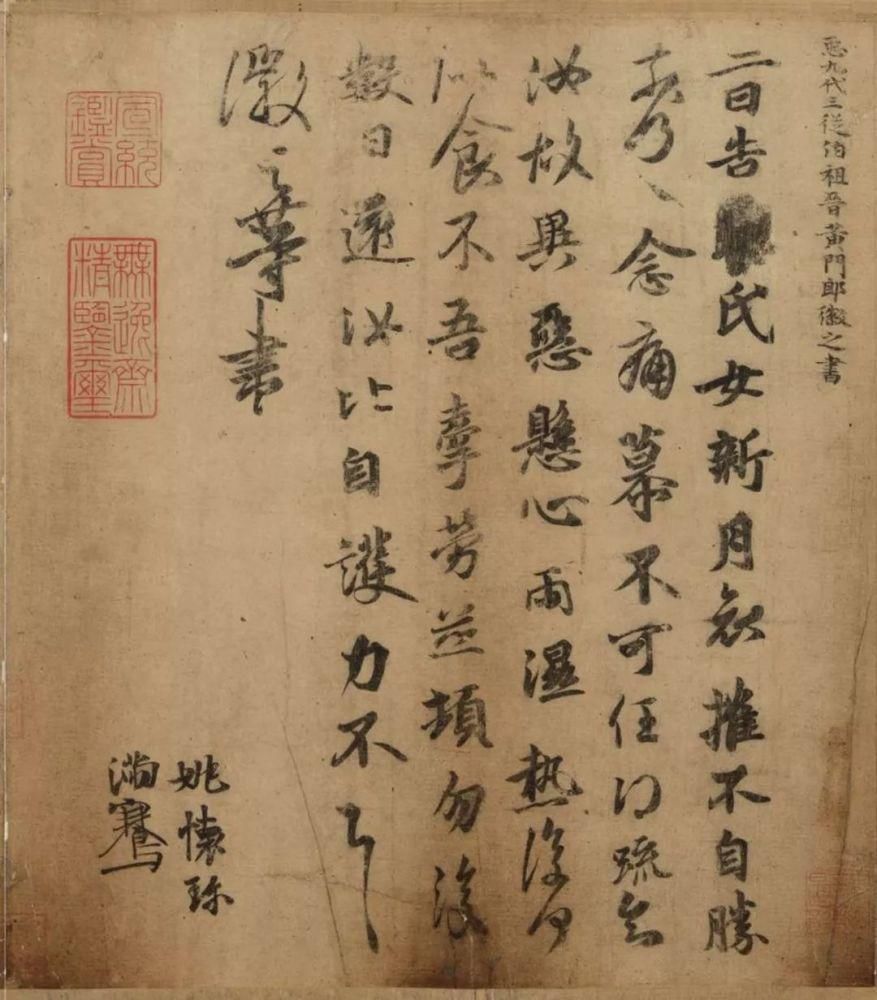 𢘑九代三從伯祖晉黃門郎徽之書
二日告氏女新月哀摧不自勝
奈何〻念痛慕不可任得疏知
汝故異惡懸心雨濕熱復何
似食不吾牽勞並頓勿復
數日還汝比自護力不一一
徽之等書
姚懷珍
滿騫
宣統鑑賞
無逸齋精鑒璽